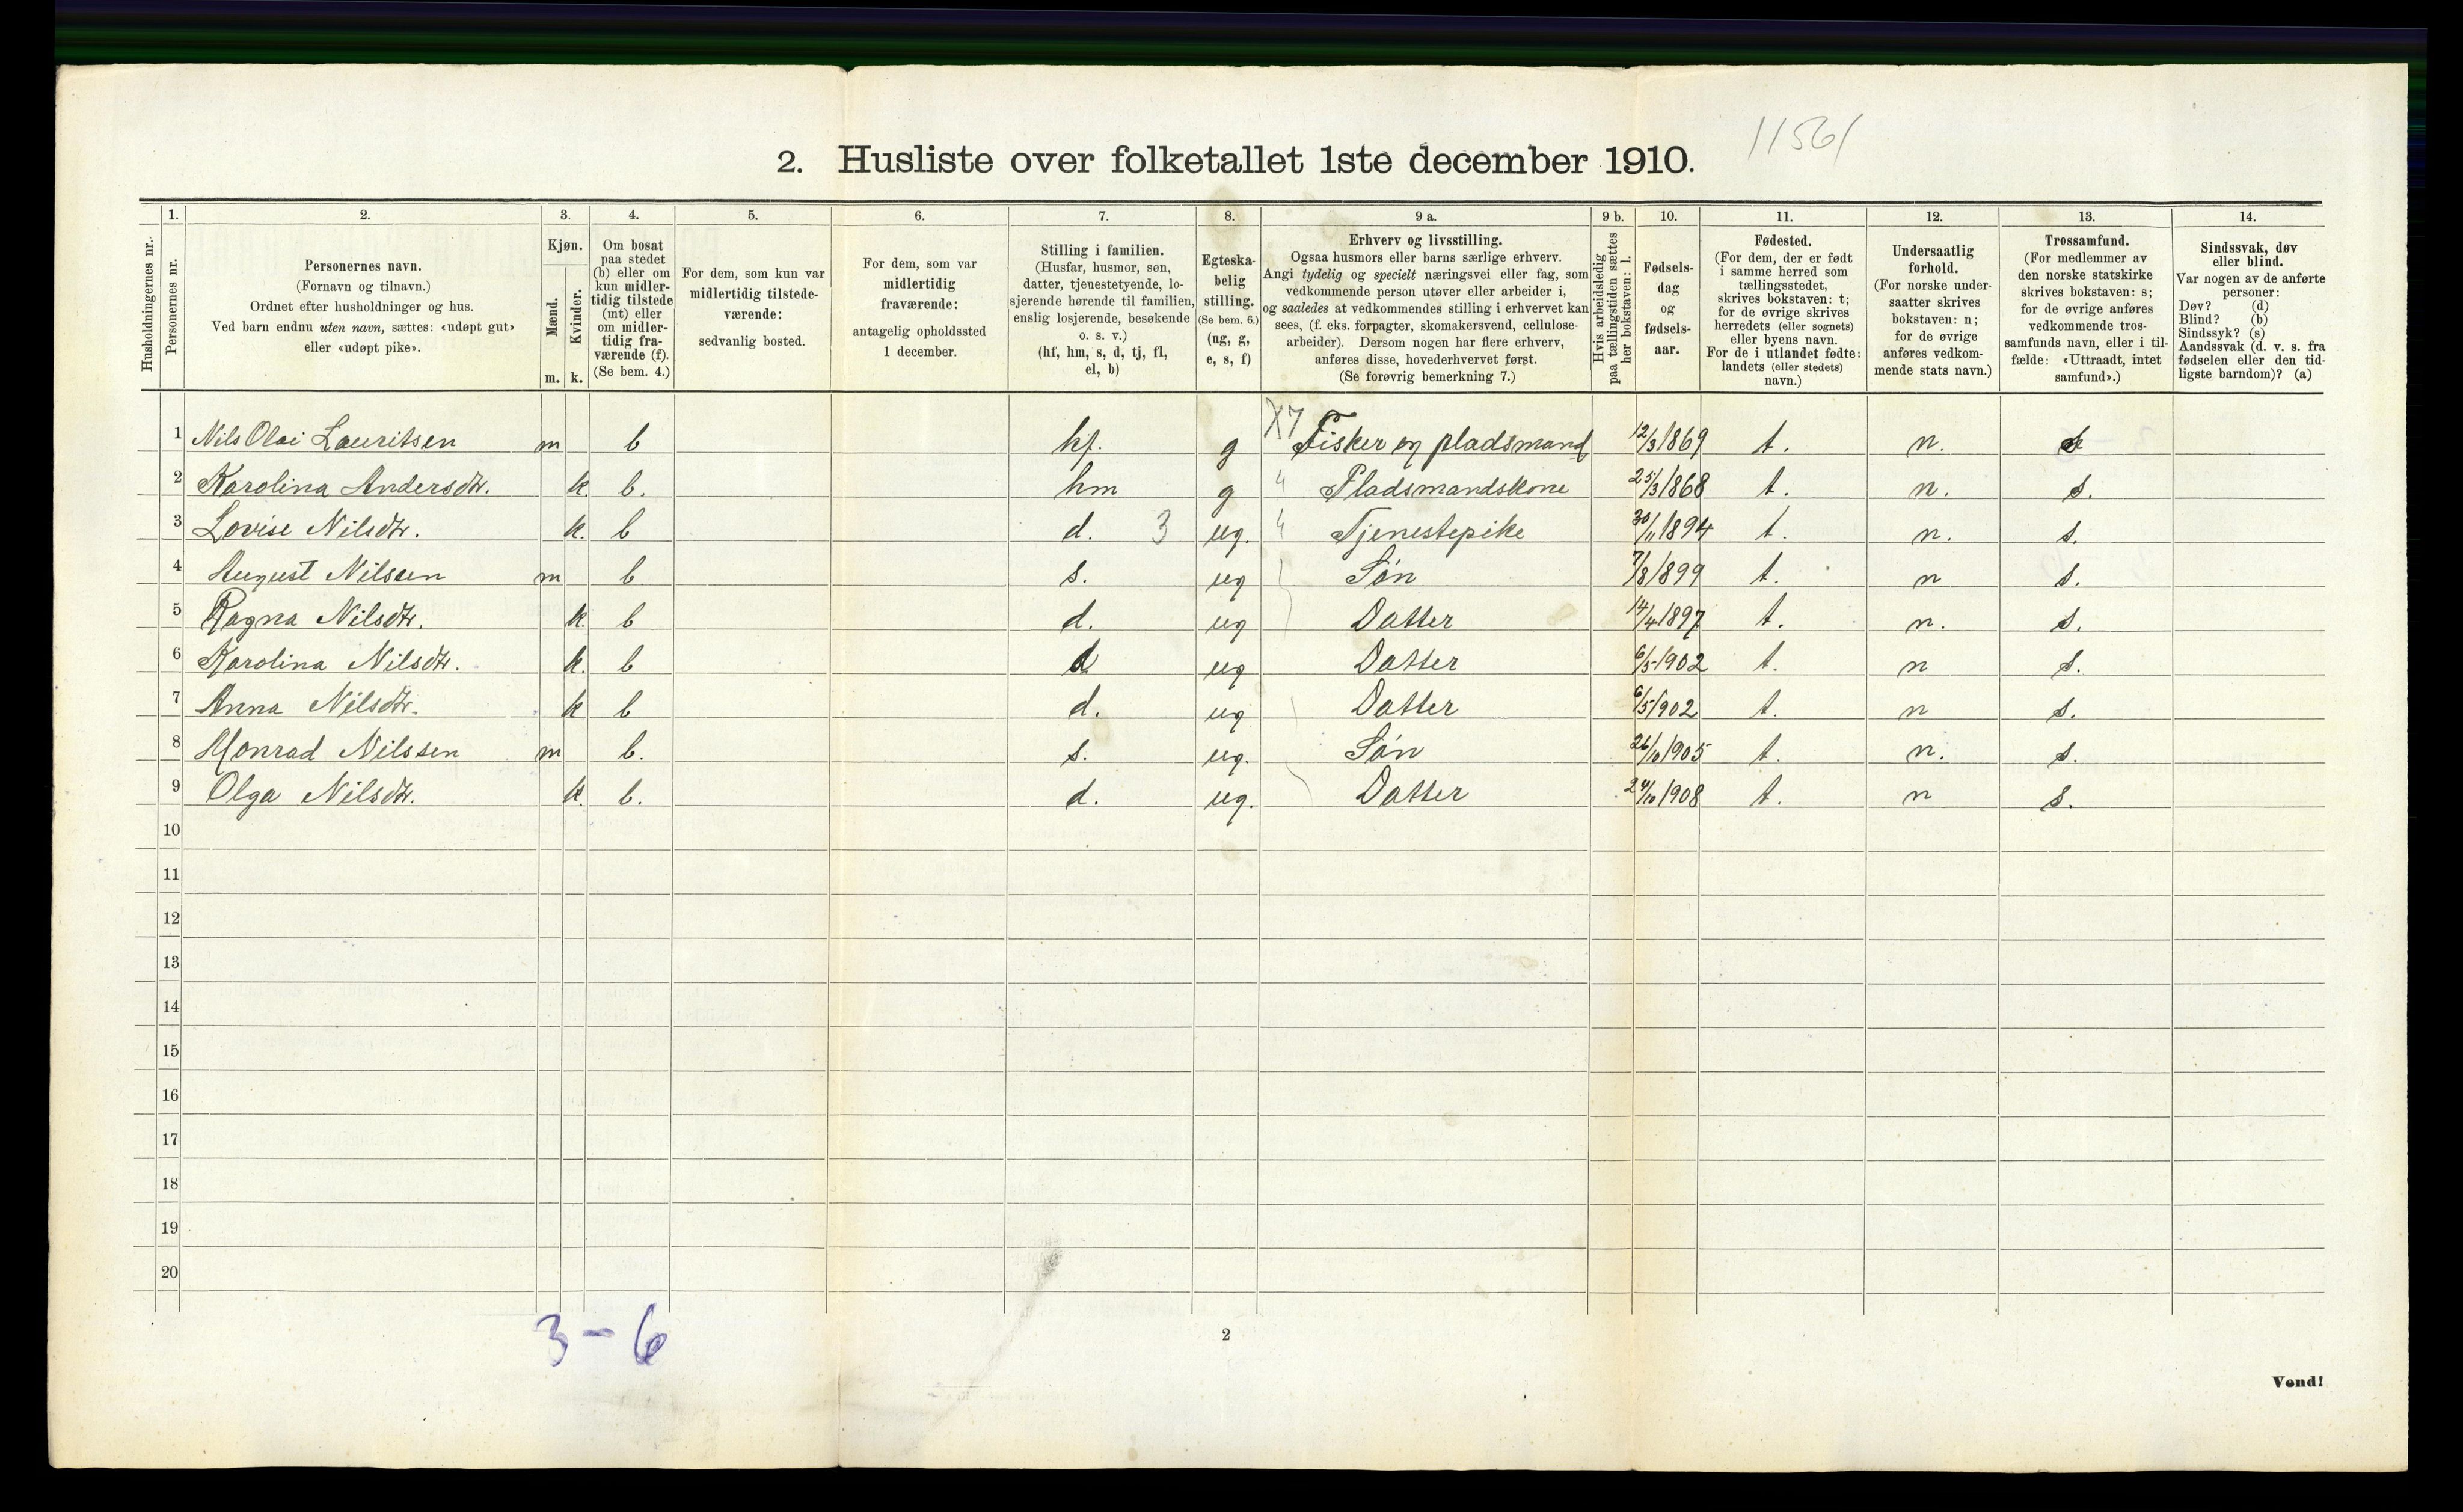 11561
2. Husliste over folketallet 1ste december 1910.
Husholdningernes nr.
1.
Personernes nr.
2.
Personernes navn.
(Fornavn og tilnavn.)
Ordnet efter husholdninger og hus.
Ved barn endnu uten navn, sættes: «udøpt gut»
eller «udøpt pike».
3.
Kjøn.
Mænd.
Kvinder.
m. k.
4.
Om bosat
paa stedet
(b) eller om
kun midler-
tidig tilstede
(mt) eller
om midler-
tidig fra-
værende (f).
(Se bem. 4.)
5.
For dem, som kun var
midlertidig tilstede-
værende:
sedvanlig bosted.
6.
For dem, som var
midlertidig
fraværende:
antagelig opholdssted
1 december.
7.
Stilling i familien.
(Husfar, husmor, søn,
datter, tjenestetyende, lo-
sjerende hørende til familien,
enslig losjerende, besøkende
o. s. v.)
(hf, hm, s, d, tj, fl,
el, b)
8.
Egteska-
belig
stilling.
(Se bem. 6.)
(ug, g,
e, s, f)
9 a.
Erhverv og livsstilling.
Ogsaa husmors eller barns særlige erhverv.
Angi tydelig og specielt næringsvei eller fag, som
vedkommende person utøver eller arbeider i,
og saaledes at vedkommendes stilling i erhvervet kan
sees, (f. eks. forpagter, skomakersvend, cellulose-
arbeider). Dersom nogen har flere erhverv,
anføres disse, hovederhvervet først.
(Se forøvrig bemerkning 7.)
9 b.
Hvis arbeidsledig
paa tællingstiden sættes
her bokstaven: l.
10.
Fødsels-
dag
og
fødsels-
aar.
11.
Fødested.
(For dem, der er født
i samme herred som
tællingsstedet,
skrives bokstaven: t;
for de øvrige skrives
herredets (eller sognets)
eller byens navn.
For de i utlandet fødte:
landets (eller stedets)
navn.)
12.
Undersaatlig
forhold.
(For norske under-
saatter skrives
bokstaven: n;
for de øvrige
anføres vedkom-
mende stats navn.)
13.
Trossamfund.
(For medlemmer av
den norske statskirke
skrives bokstaven: s;
for de øvrige anføres
vedkommende tros-
samfunds navn, eller i til-
fælde: «Uttraadt, intet
samfund».)
14.
Sindssvak, døv
eller blind.
Var nogen av de anførte
personer:
Døv? (d)
Blind? (b)
Sindssyk? (s)
Aandssvak (d. v. s. fra
fødselen eller den tid-
ligste barndom)? (a)
1 Nils Olai Lauritsen m b hf. g X7 Fisker og pladsmand 12/3 1869 t. n. s
2 Karolina Andersdtr. k. b. hm g " Pladsmandskone 25/3 1868 t. n. s.
3 Lovise Nilsdtr. k. b d. 3 ug. " Tjenestepike 30/11 1894 t. n. s.
4 August Nilsen m b s. ug Søn 7/8 1899 t. n s.
5 Ragna Nilsdtr. k. b. d. ug Datter 14/4 1897 t. n. s.
6 Karolina Nilsdtr. k. b d ug Datter 6/5 1902 t. n s.
7 Anna Nilsdtr. k b d. ug Datter 6/5 1902 t. n s.
8 Monrad Nilssen m b. s. ug. Søn 26/10 1905 t. n. s.
9 Olga Nilsdtr. k. b. d. ug. Datter 24/10 1908 t. n s.
10
11
12
13
14
15
16
17
18
19
20
3 - 6
2
Vend!